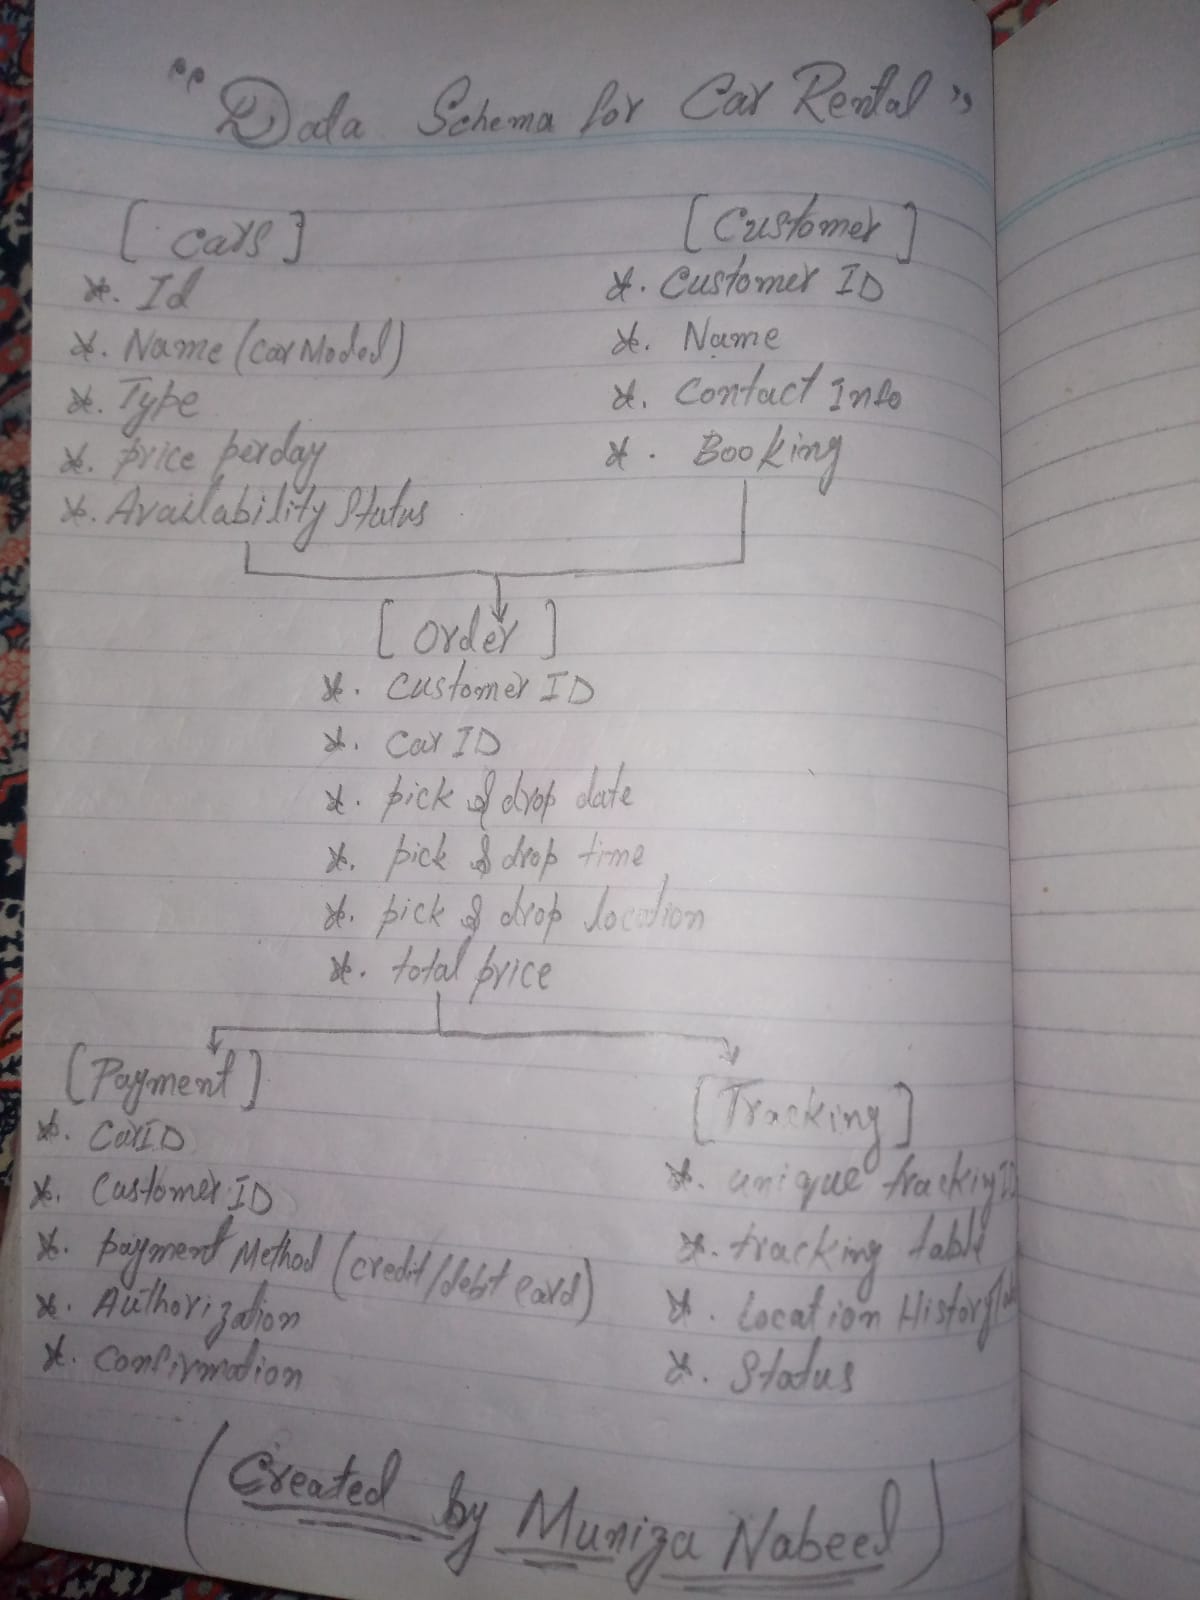 "Data Schema for Car Rental"
[Cars]
*. Id
*. Name (Car Model)
*. Type
*. price perday
*. Availability Status
[Customer]
*. Customer ID
*. Name
*. Contact Info
*. Booking
[Order]
*. Customer ID
*. Car ID
*. pick & drop date
*. pick & drop time
*. pick & drop location
*. total price
[Payment]
*. CarID
*. Customer ID
*. payment Method (credit/debt card)
*. Authorization
*. Confirmation
[Tracking]
*. unique tracking ID
*. tracking table
*. Location History
*. Status
(Created by Muniza Nabeel)